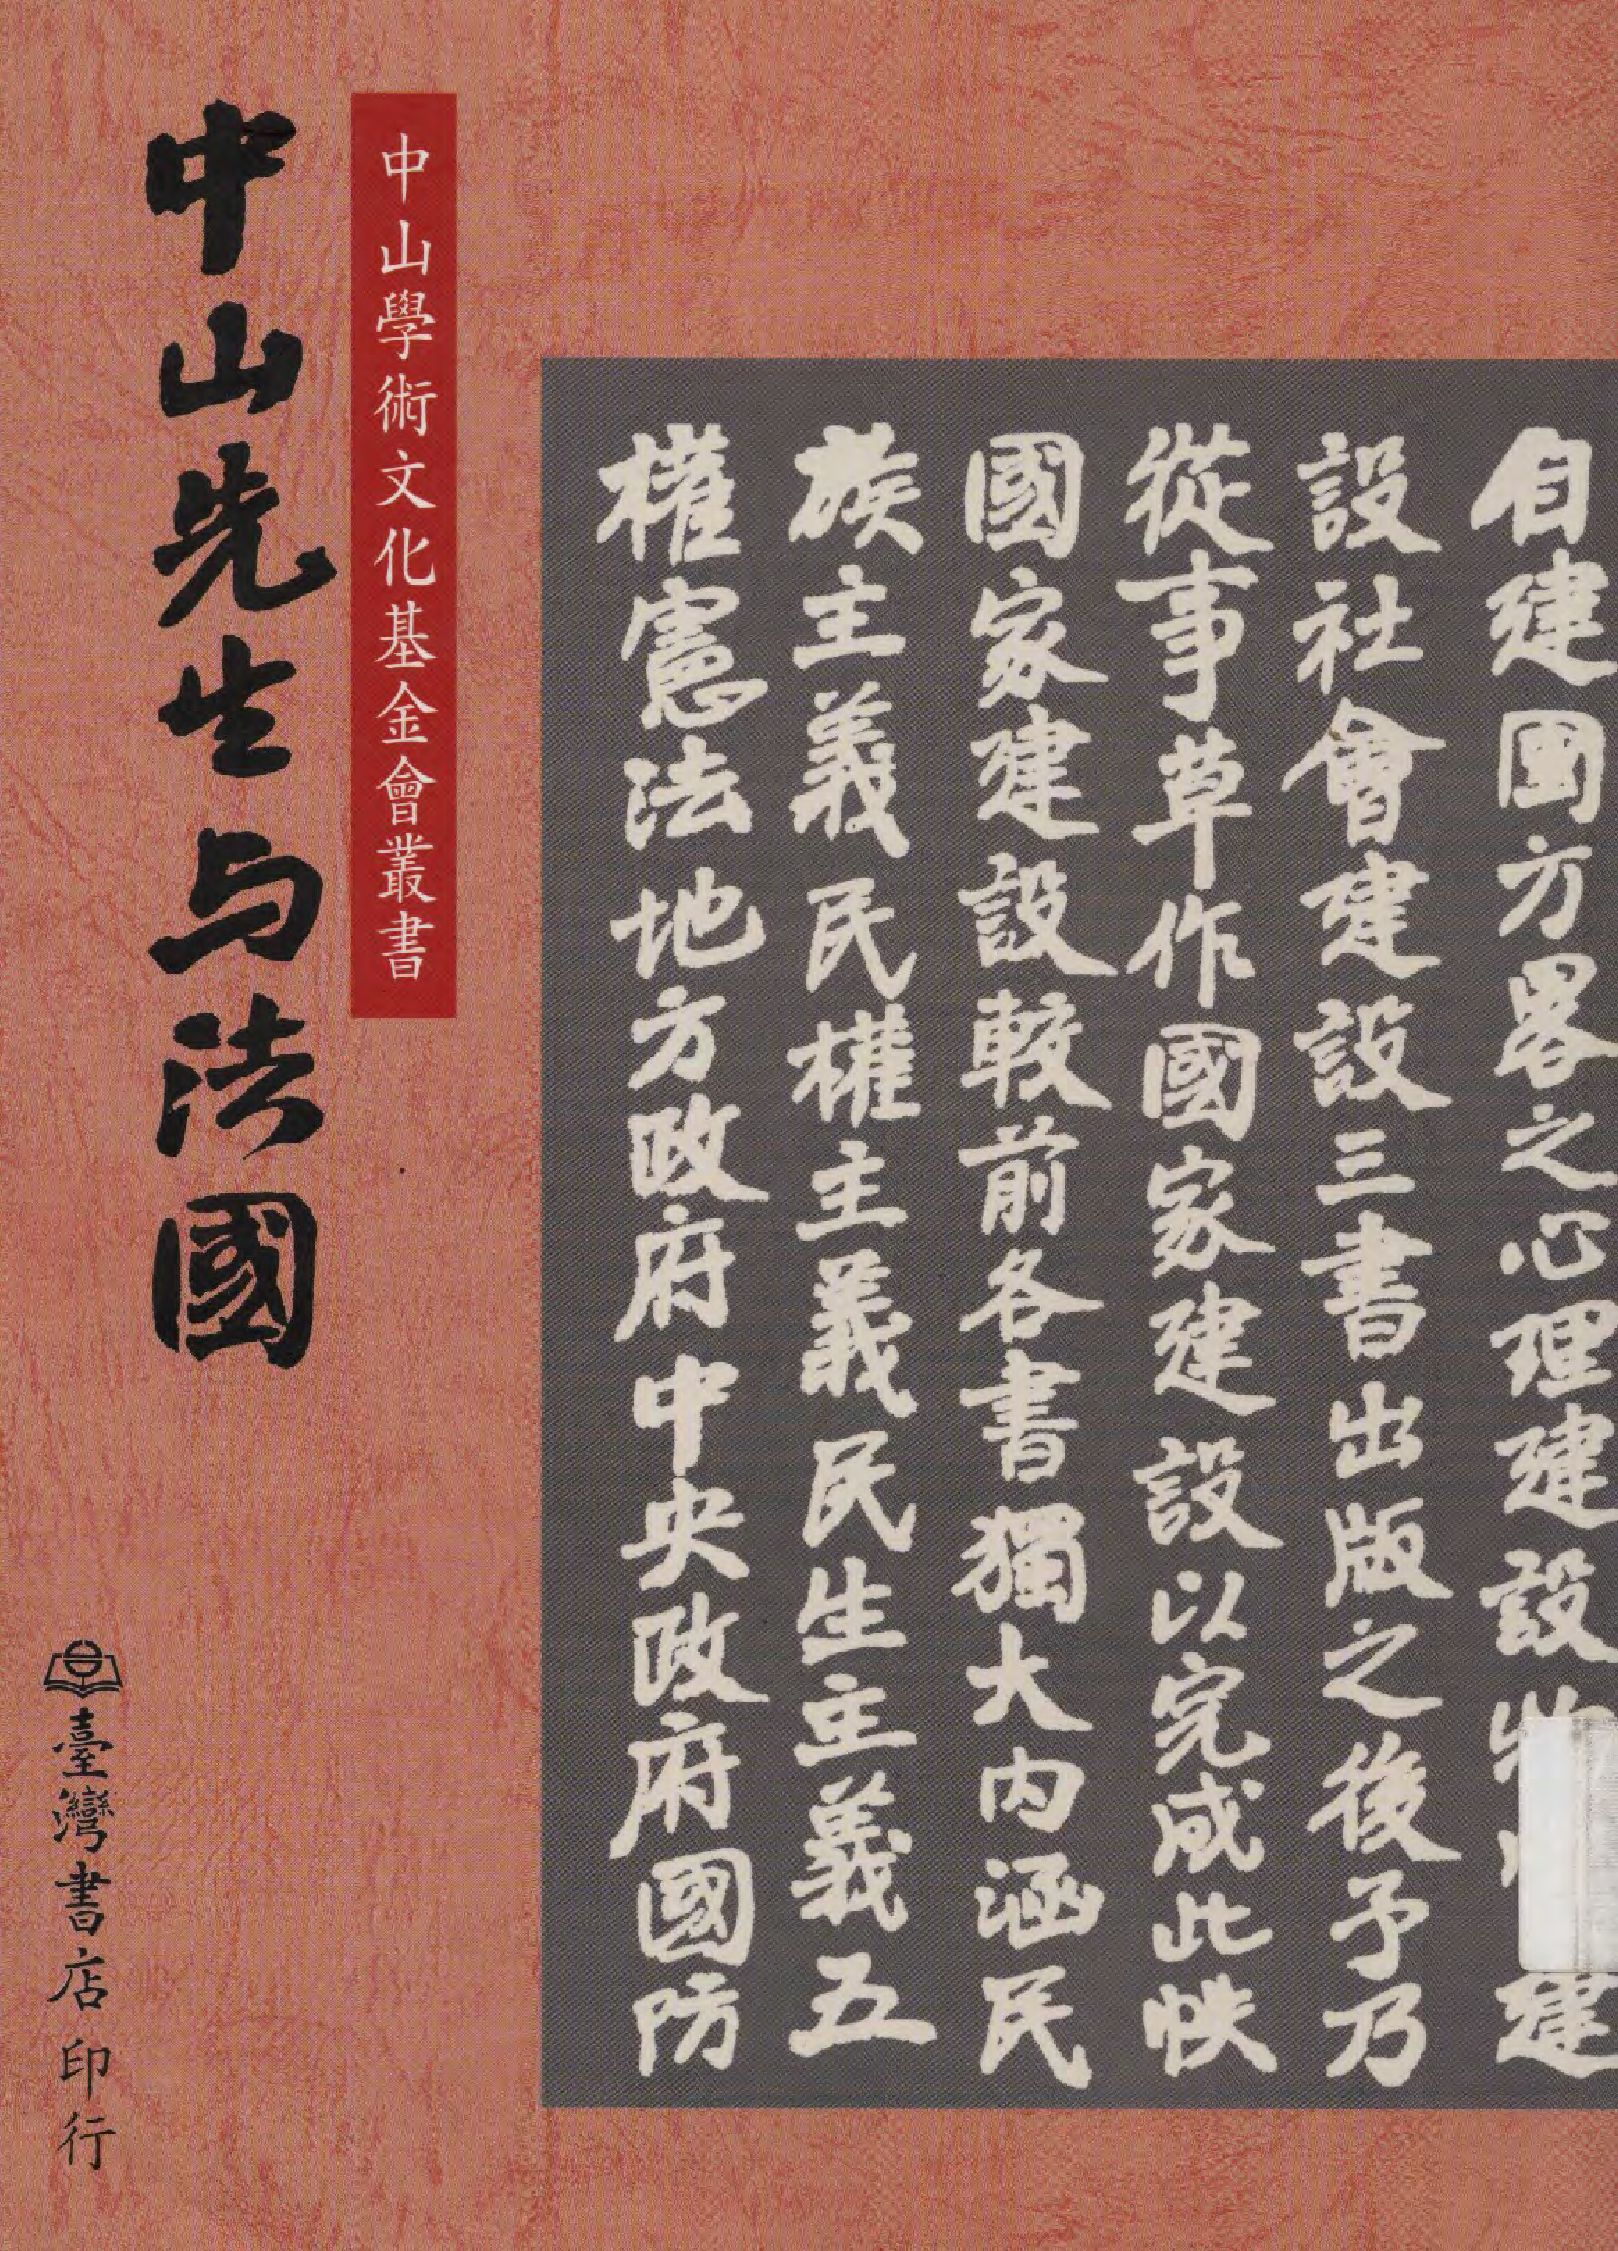 自建國方畧之心理建設 建
設社會建設三書出版之後予乃
從事草作國家建設以完成此帙
國家建設較前各書獨大內涵民
族主義民權主義民生主義五
權憲法地方政府中央政府國防
中山學術文化基金會叢書
中山先生与法國
臺灣書店印行